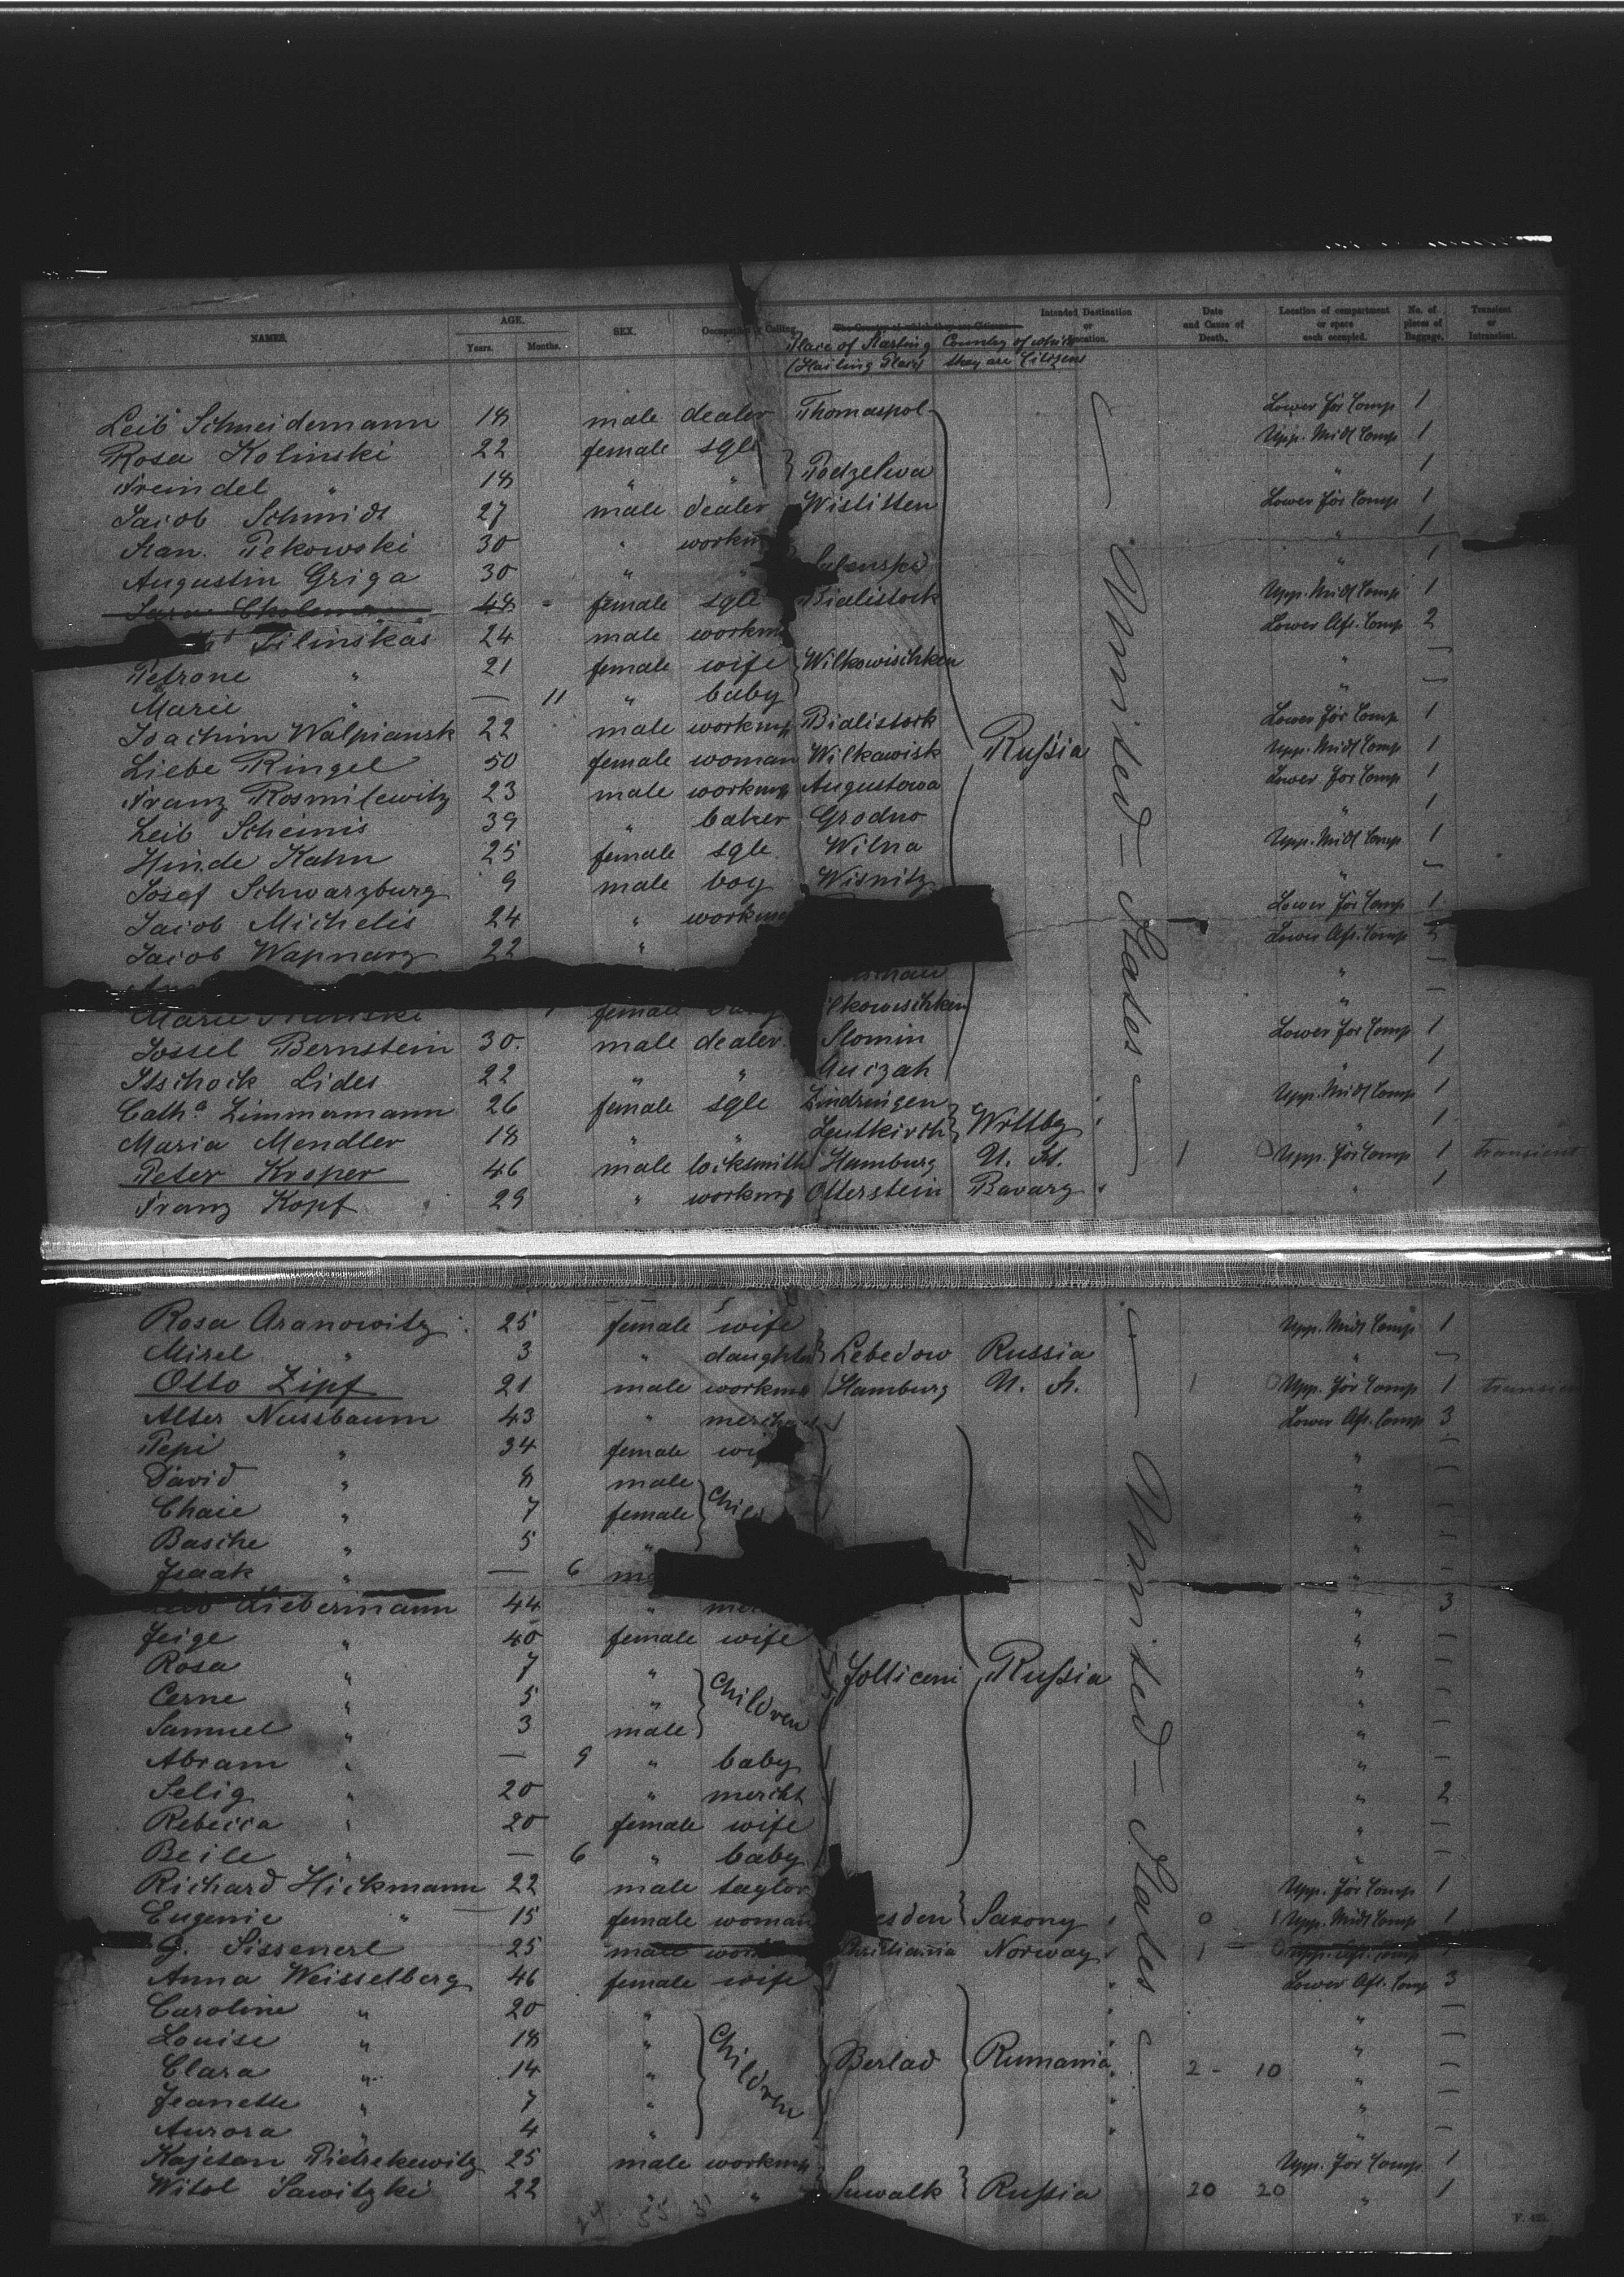 NAMES. AGE. SEX. Occupation or Calling. The Country of which they are Citizens. Intended Destination or Location. Date and Cause of Death. Location of compartment or space each occupied. No. of pieces of Baggage. Transient or Intransient.
Years. Months. Place of Starting (Hailing Place) Country of which they are Citizens
Leib Schneidemann 18 male dealer Thomaspol Lower For Comp 1
Rosa Kolinski 22 female sgle Upp. Midl Comp 1
Freindel " 18 " " Podzelwa " 1
Jacob Schmidt 27 male dealer Wistitten Lower For Comp 1
Stan. Pekowski 30 " workm " 1
Augustin Griga 30 " " " 1
48 female sgle Bialistock Upp. Midl Comp 1
Silinskas 24 male workm Lower Aft. Comp 2
Petrone " 21 female wife Wilkowischken " —
Marie " — 11 " baby " —
Joachim Walpiansk 22 male workmg Bialistock Lower For Comp 1
Liebe Ringel 50 female woman Wilkawisk Russia Upp. Midl Comp 1
Franz Rosmilewitz 23 male workmg Augustowa Lower For Comp 1
Leib Scheinis 39 " baker Grodno " 1
Hinde Kahn 25 female sgle Wilna Upp. Midl Comp 1
Josef Schwarzburg 9 male boy Wisnitz " —
Jacob Michelis 24 " workmg Lower For Comp 1
Jacob Wapnarz 22 " Lower Aft. Comp 2
" —
Marie female ilkowischken " —
Jossel Bernstein 30 male dealer Slonim Lower For Comp 1
Itschock Lides 22 " " " 1
Cath^a Zimmermann 26 female sgle Zindringen Upp. Midl Comp 1
Maria Mendler 18 " " Leutkirch Wrttbg " 1
Peter Kroper 46 male locksmith Hamburg U. St. 1 0 Upp. For Comp 1 transient
Franz Kopf 29 " workmg Otterstein Bavarg " 1
United States
Rosa Aranowitz 25 female wife Upp. Midl Comp 1
Mirel " 3 " daughter Lebedow Russia " —
Otto Zipf 21 male workmg Hamburg U. St. 1 0 Upp. For Comp 1 transient
Alter Nussbaum 43 " Lower Aft. Comp 3
Pepi " 34 female wife " —
David " 8 male " —
Chaie " 7 female " —
Basche " 5 " " —
Isaak " — 6 " —
Liebermann 44 " " 3
Feige " 40 female wife " —
Rosa " 7 " " —
Cerne " 5 " Children Folticeni Russia " —
Samuel " 3 male " —
Abram " — 9 " baby " —
Selig " 20 " mercht " 2
Rebecca " 20 female wife " —
Beile " — 6 " baby " —
Richard Hickmann 22 male taylor Upp. For Comp 1
Eugenie " 15 female woman esden Saxony 0 1 Upp. Midl Comp 1
G. Sissenerl 25 male Christiania Norway 1 – 0 Upp. Aft. Comp 1
Anna Weisselberg 46 female wife Lower Aft. Comp 3
Caroline " 20 " " —
Louise " 18 " " —
Clara " 14 " Children Berlad Rumania 2 – 10 " —
Jeanette " 7 " " —
Aurora " 4 " " —
Kajetan Pietrekewitz 25 male workmg Upp. For Comp 1
Witol Sawitzki 22 " " Suwalk Russia 20 20 " 1
United States